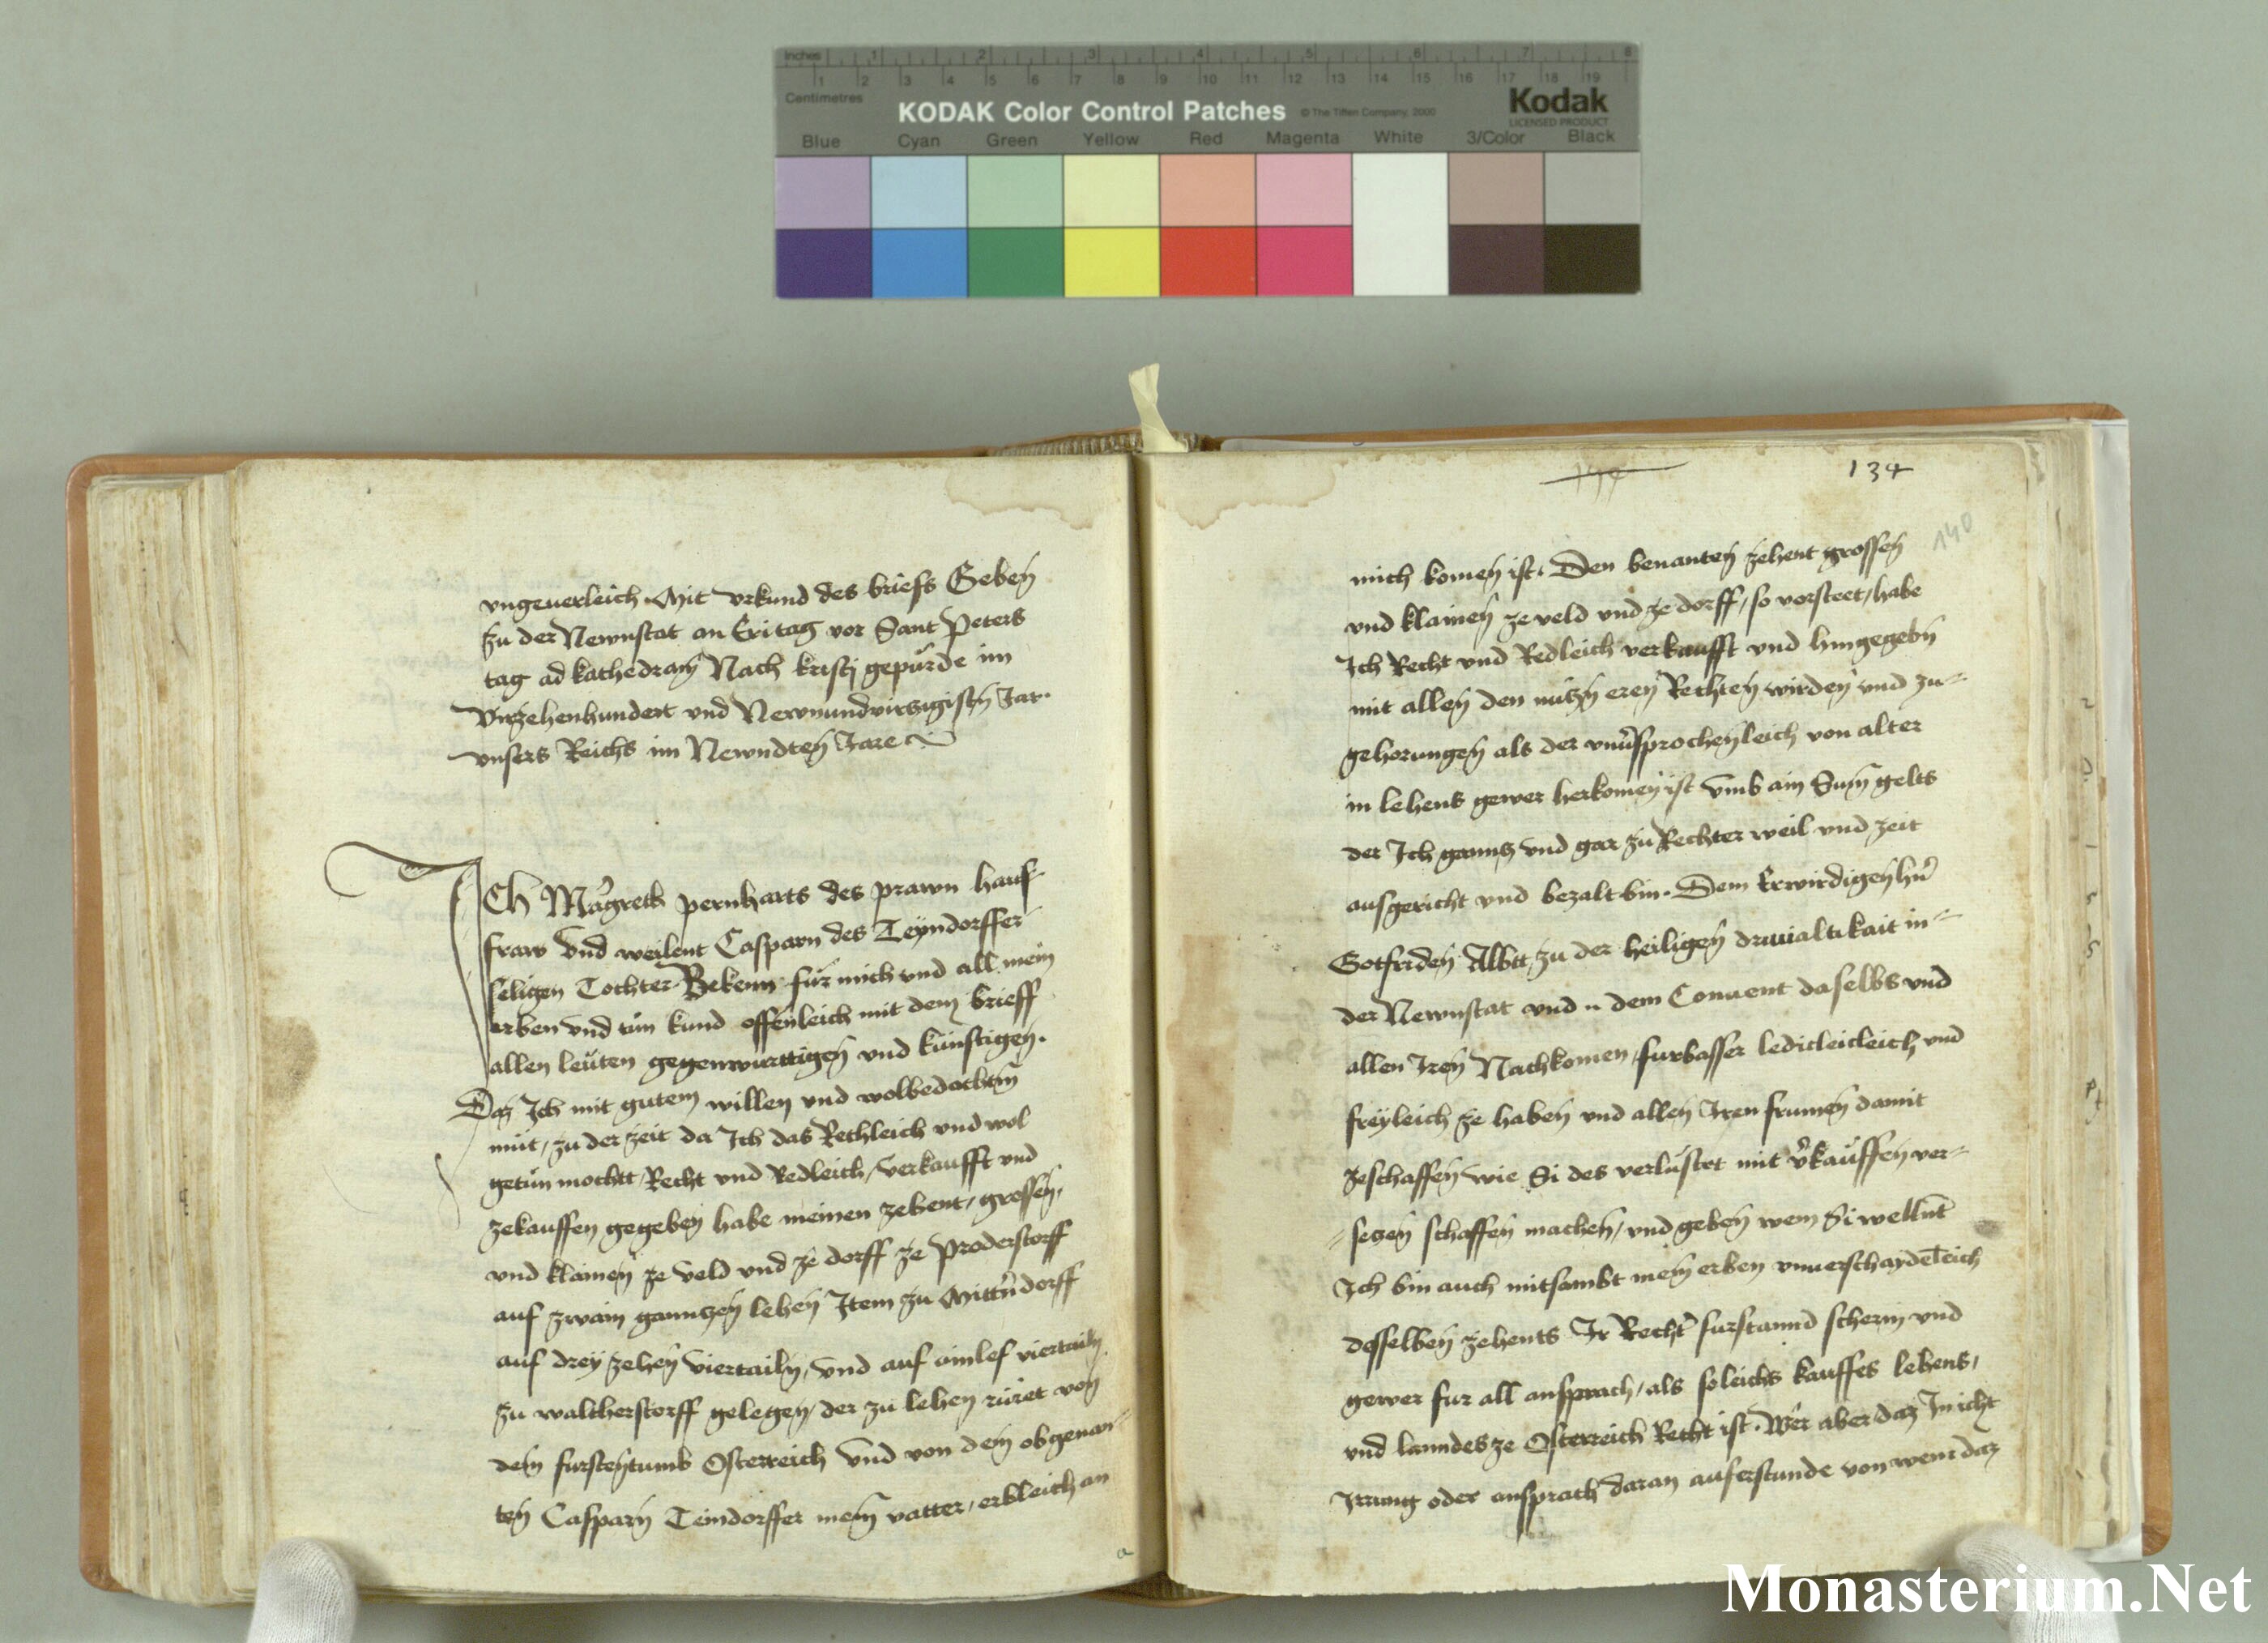 Inches 1 2 3 4 5 6 7 8
1 2 3 4 5 6 7 8 9 10 11 12 13 14 15 16 17 18 19
Centimetres
KODAK Color Control Patches © The Tiffen Company, 2000 Kodak
LICENSED PRODUCT
Blue Cyan Green Yellow Red Magenta White 3/Color Black
vngeuerleich. Mit vrkund des briefs Geben
zu der Newnstat an Eritag vor Sant Peters
tag ad kathedram Nach kristj gepürde im
Virzehenhundert und Newnundvirtzigisten Jar.
vnsers Reichs im Newndten Jare
ICh Margreth pernharts des prawn hausfraw
fraw vnd weilent Casparn des Teyndorffer
seligen Tochter Bekenn für mich und all mein
erben vnd tün kund offenleich mit dem brieff
allen leüten gegenwurttigen und künftigen.
Daz Ich mit gutem willen und wolbedachtem
müt, zu der zeit da Ich das Rechleich und wol
getün mochtt, Recht und Redleich, verkaufft und
zekauffen gegeben habe meinen zehent, grossen,
und klainen ze veld und ze dorff ze Proderstorff
auf zwain ganntzen lehen Item zu Mitterndorff
auf drey zehen viertailn, und auf ainlef viertailn
zu waltherstorff gelegen, der zu lehen rüret von
dem furstentumb Osterreich vnd von dem obgenan-
ten Casparn Teindorffer meim vatter, erbleich an
134
140
mich komen ist. Den benanten zehent grossen
und klainen ze veld und ze dorff, so vorsteet, habe
Ich Recht und Redleich verkaufft und hingegebn
mit allen den nützn eren Rechten wirden und zu-
gehorungen als der vnuersprochenleich von alter
in lehens gewer herkomen ist vmb ain Sum gelts
der Ich ganntz vnd gar zu Rechter weil und zeit
ausgericht und bezalt bin. Dem Erwirdigen hern
Gotfriden Abbtt, zu der heiligen driualtikait in-
der Newnstat und dem Conuent daselbs vnd
allen Iren Nachkomen, furbasser ledicleicleich und
freyleich ze haben und allen Iren frumen damit
zeschaffen wie Si des verlustet mit verkauffen ver-
setzen schaffen machen, und geben wem Si wellent
Ich bin auch mitsambt mein erben vnuerschaydenleich
desselben zehents Ir Rechter furstannd scherm und
gewer fur all ansprach, als soleichs kauffes lehens,
und lanndes ze Osterreich Recht ist. Wer aber daz In icht
Irrung oder ansprach daran auferstunde von wem daz
Monasterium.Net